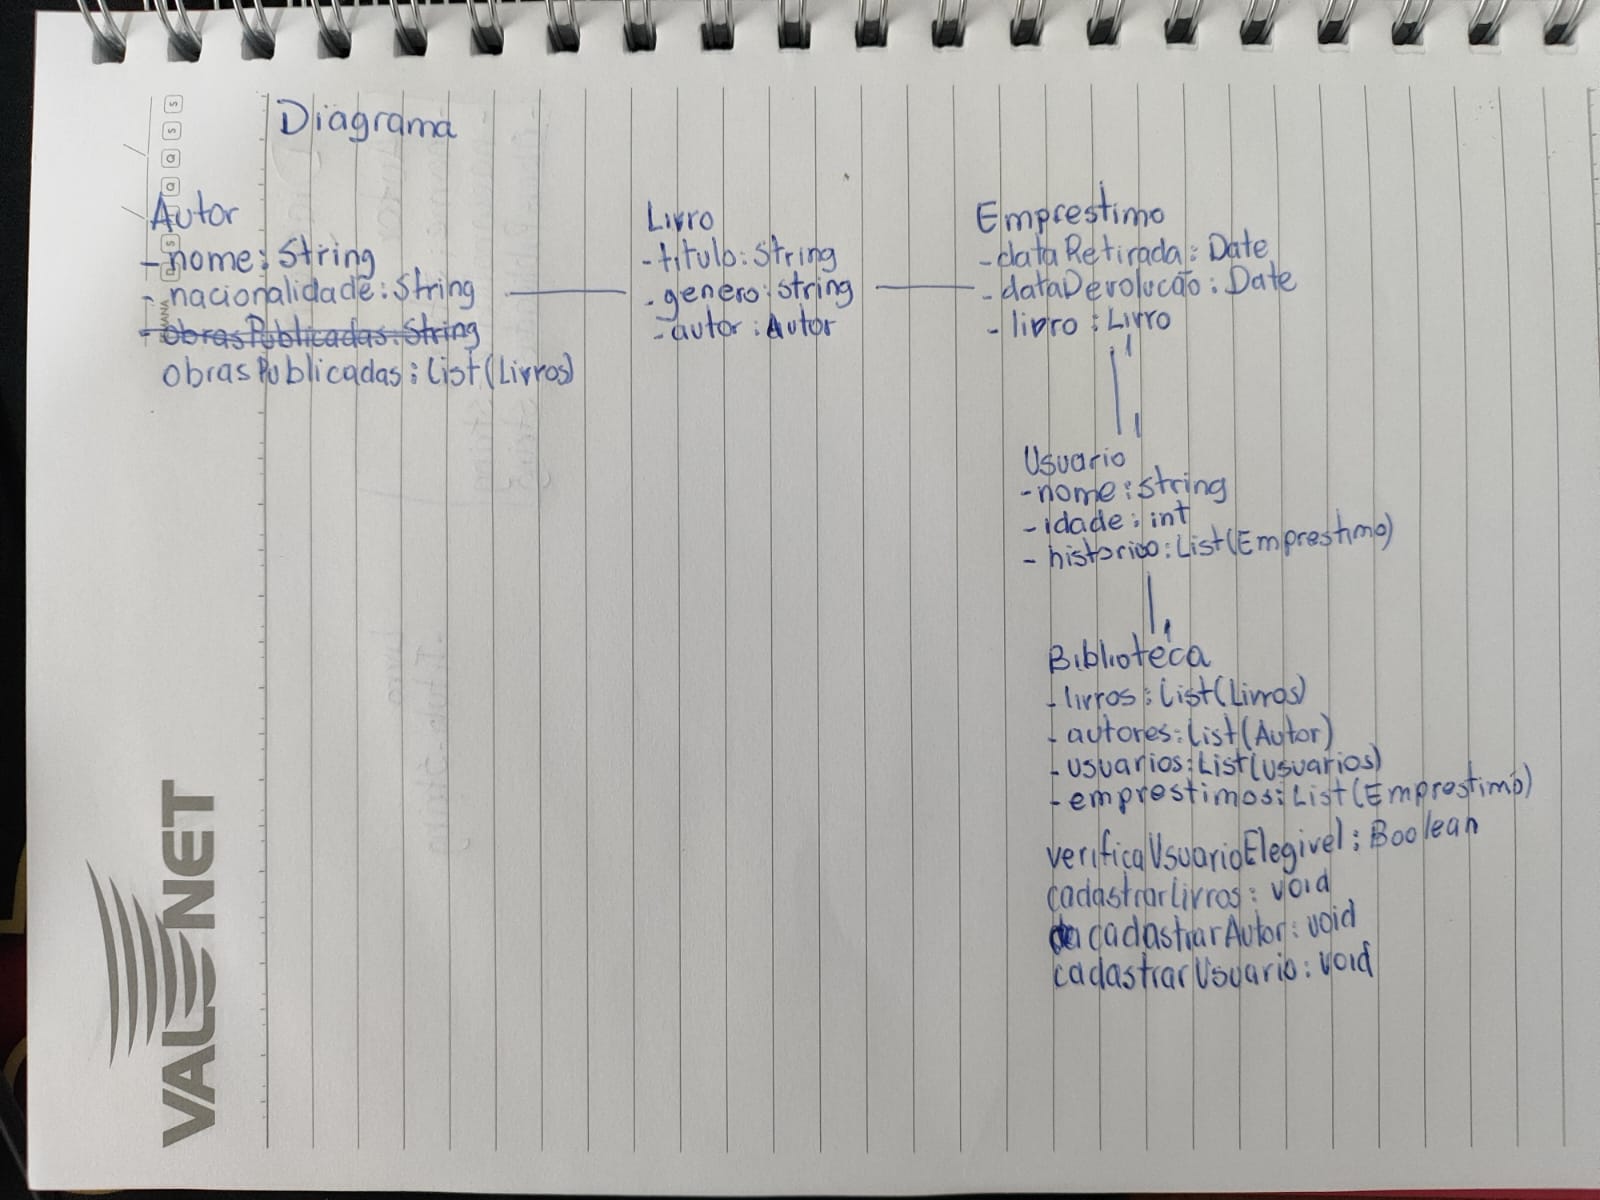 Diagrama
Autor
- nome: String
- nacionalidade: String
- obrasPublicadas: String
obrasPublicadas: List(Livros)
Livro
- titulo: String
- genero: string
- autor: Autor
Emprestimo
- dataRetirada: Date
- dataDevolucão: Date
- livro: Livro
Usuario
- nome: string
- idade: int
- historico: List(Emprestimo)
Biblioteca
- livros: List(Livros)
- autores: List(Autor)
- usuarios: List(usuarios)
- emprestimos: List(Emprestimo)
verificaUsuarioElegivel: Boolean
cadastrarLivros: void
cadastrarAutor: void
cadastrarUsuario: void
VALENET